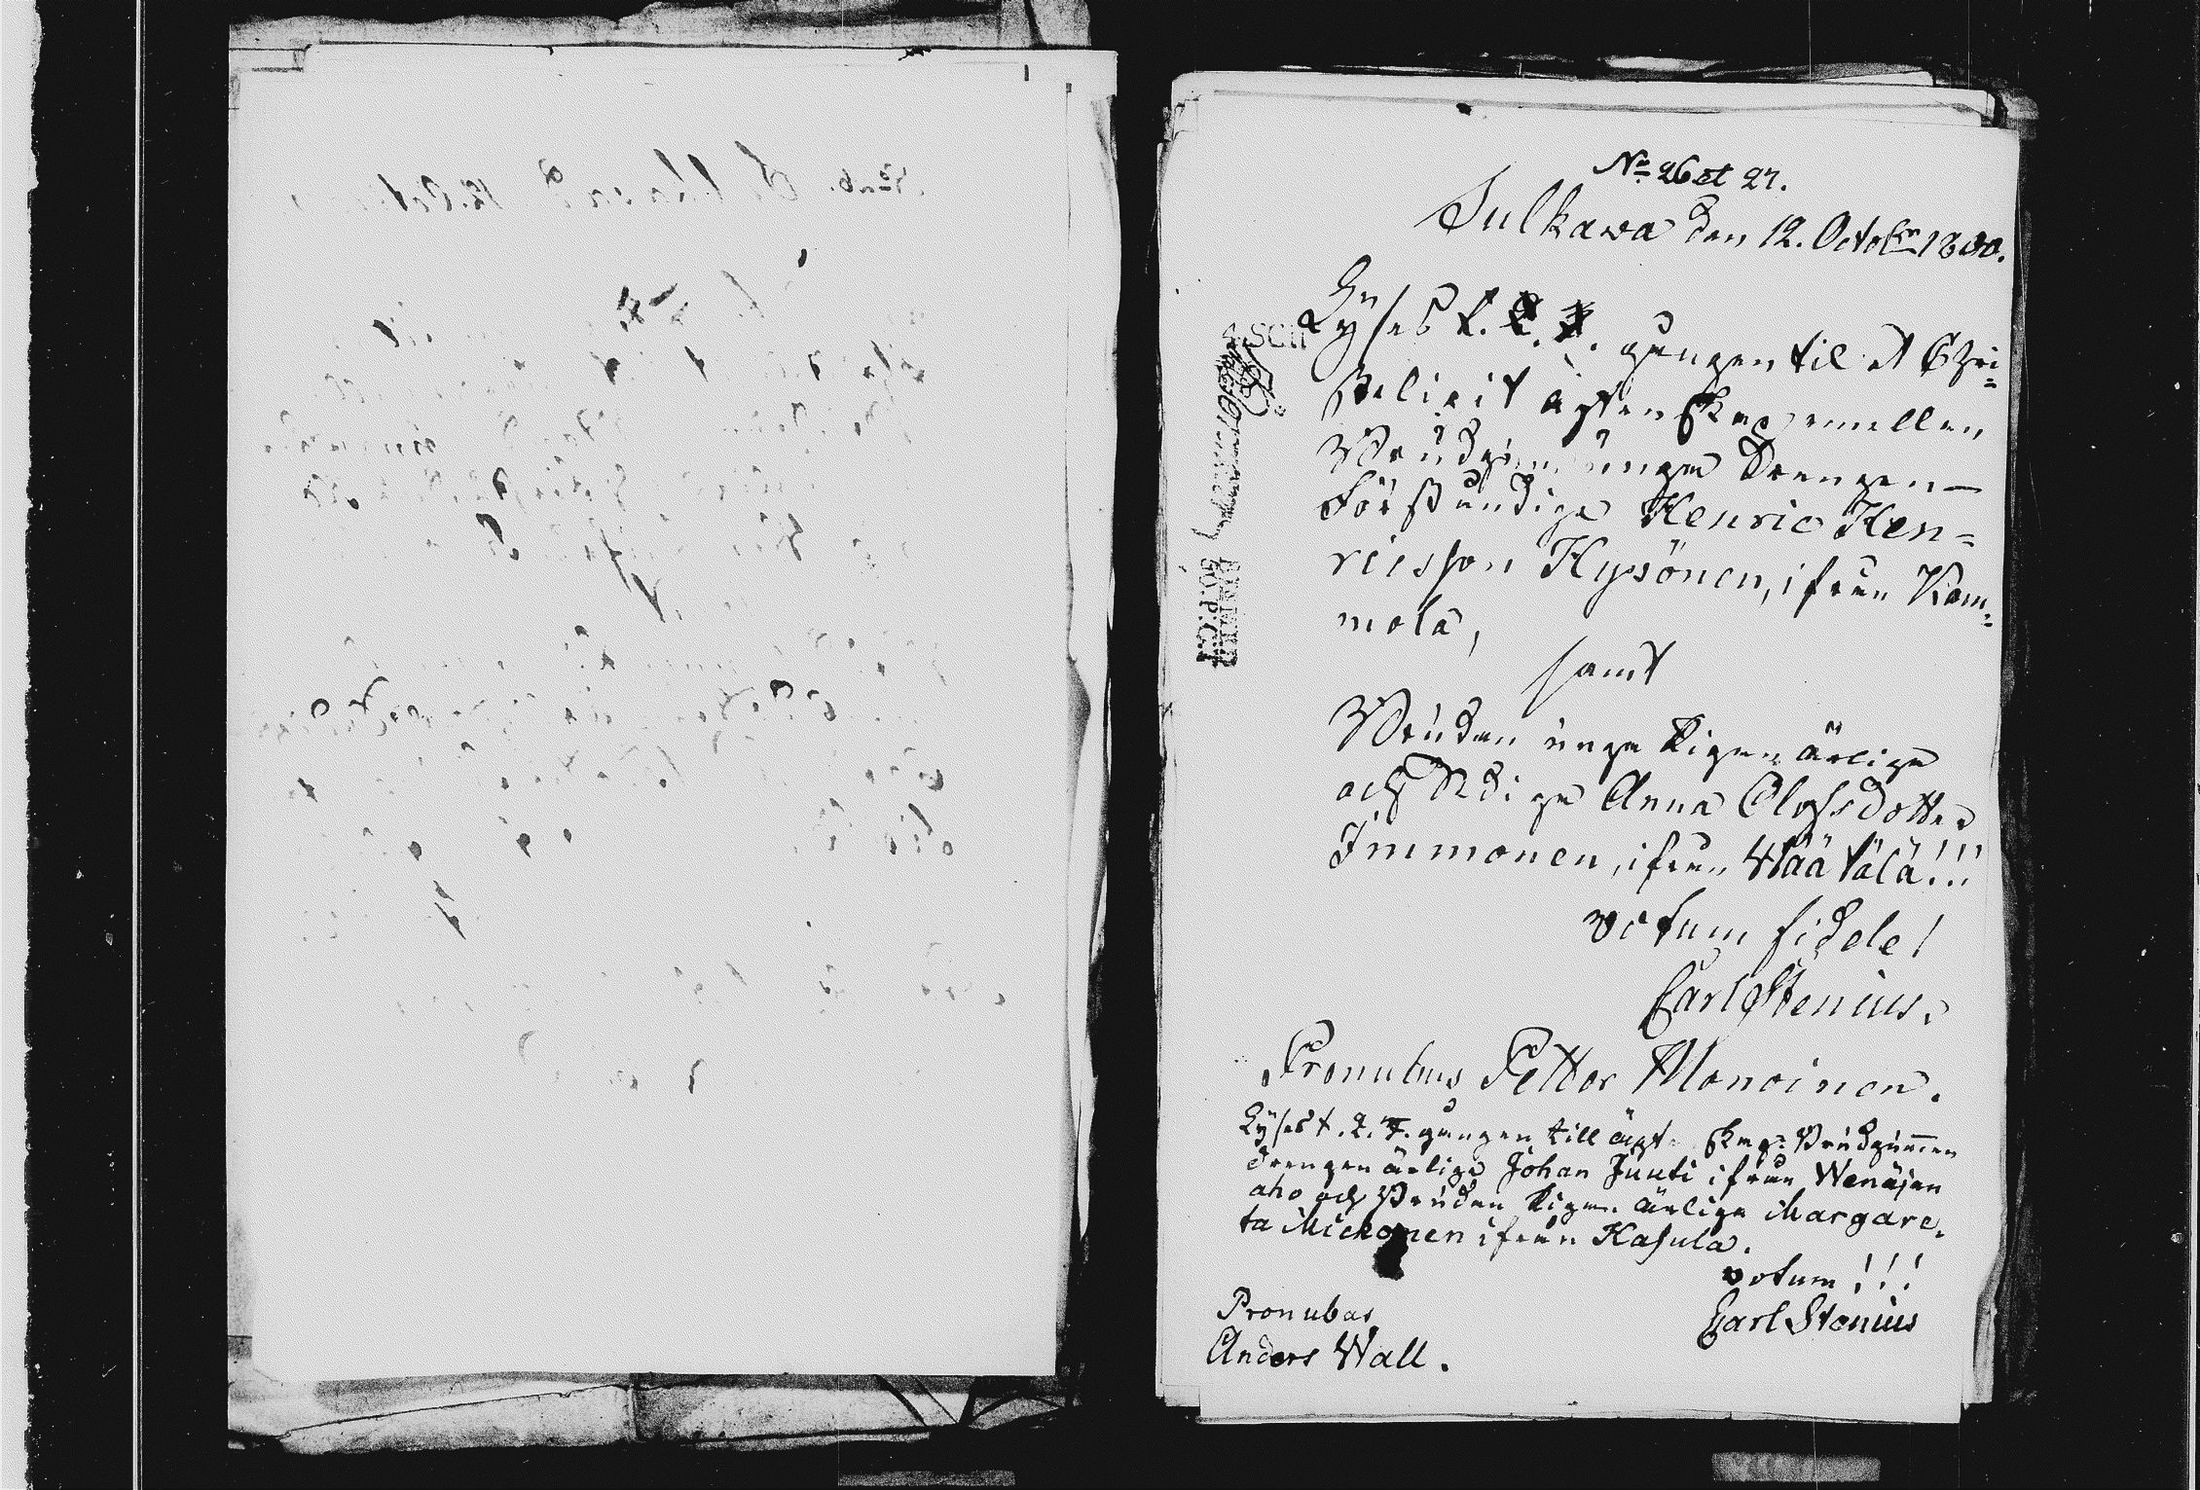 No 26 et 27.
Sulkawa den 12. Octobr 1800.
Lyses 1. 2. 3. gången til et Chri=
steligit ägtenskap emellan
Brudgum unga Drengen
Förståndige Henric Hen=
ricsson Hyvönen, ifrån Kam=
mola,
samt
Bruden unga Pigan ärlige
och Dydige Anna Olofsdotter
Immonen, ifrån Wäätälä!!!
votum fidele!
Carl Stenius.
Pronubus Petter Manninen.
Lyses 1. 2. 3. gången till ägtenskap: Brudgummen
Drengen ärlige Johan Juuti ifrån Wenäjän
aho och Bruden Pigan ärliga Margare,
ta Mickonen ifrån Kasula.
votum!!!
Carl Stenius
Pronubus
Anders Wall.